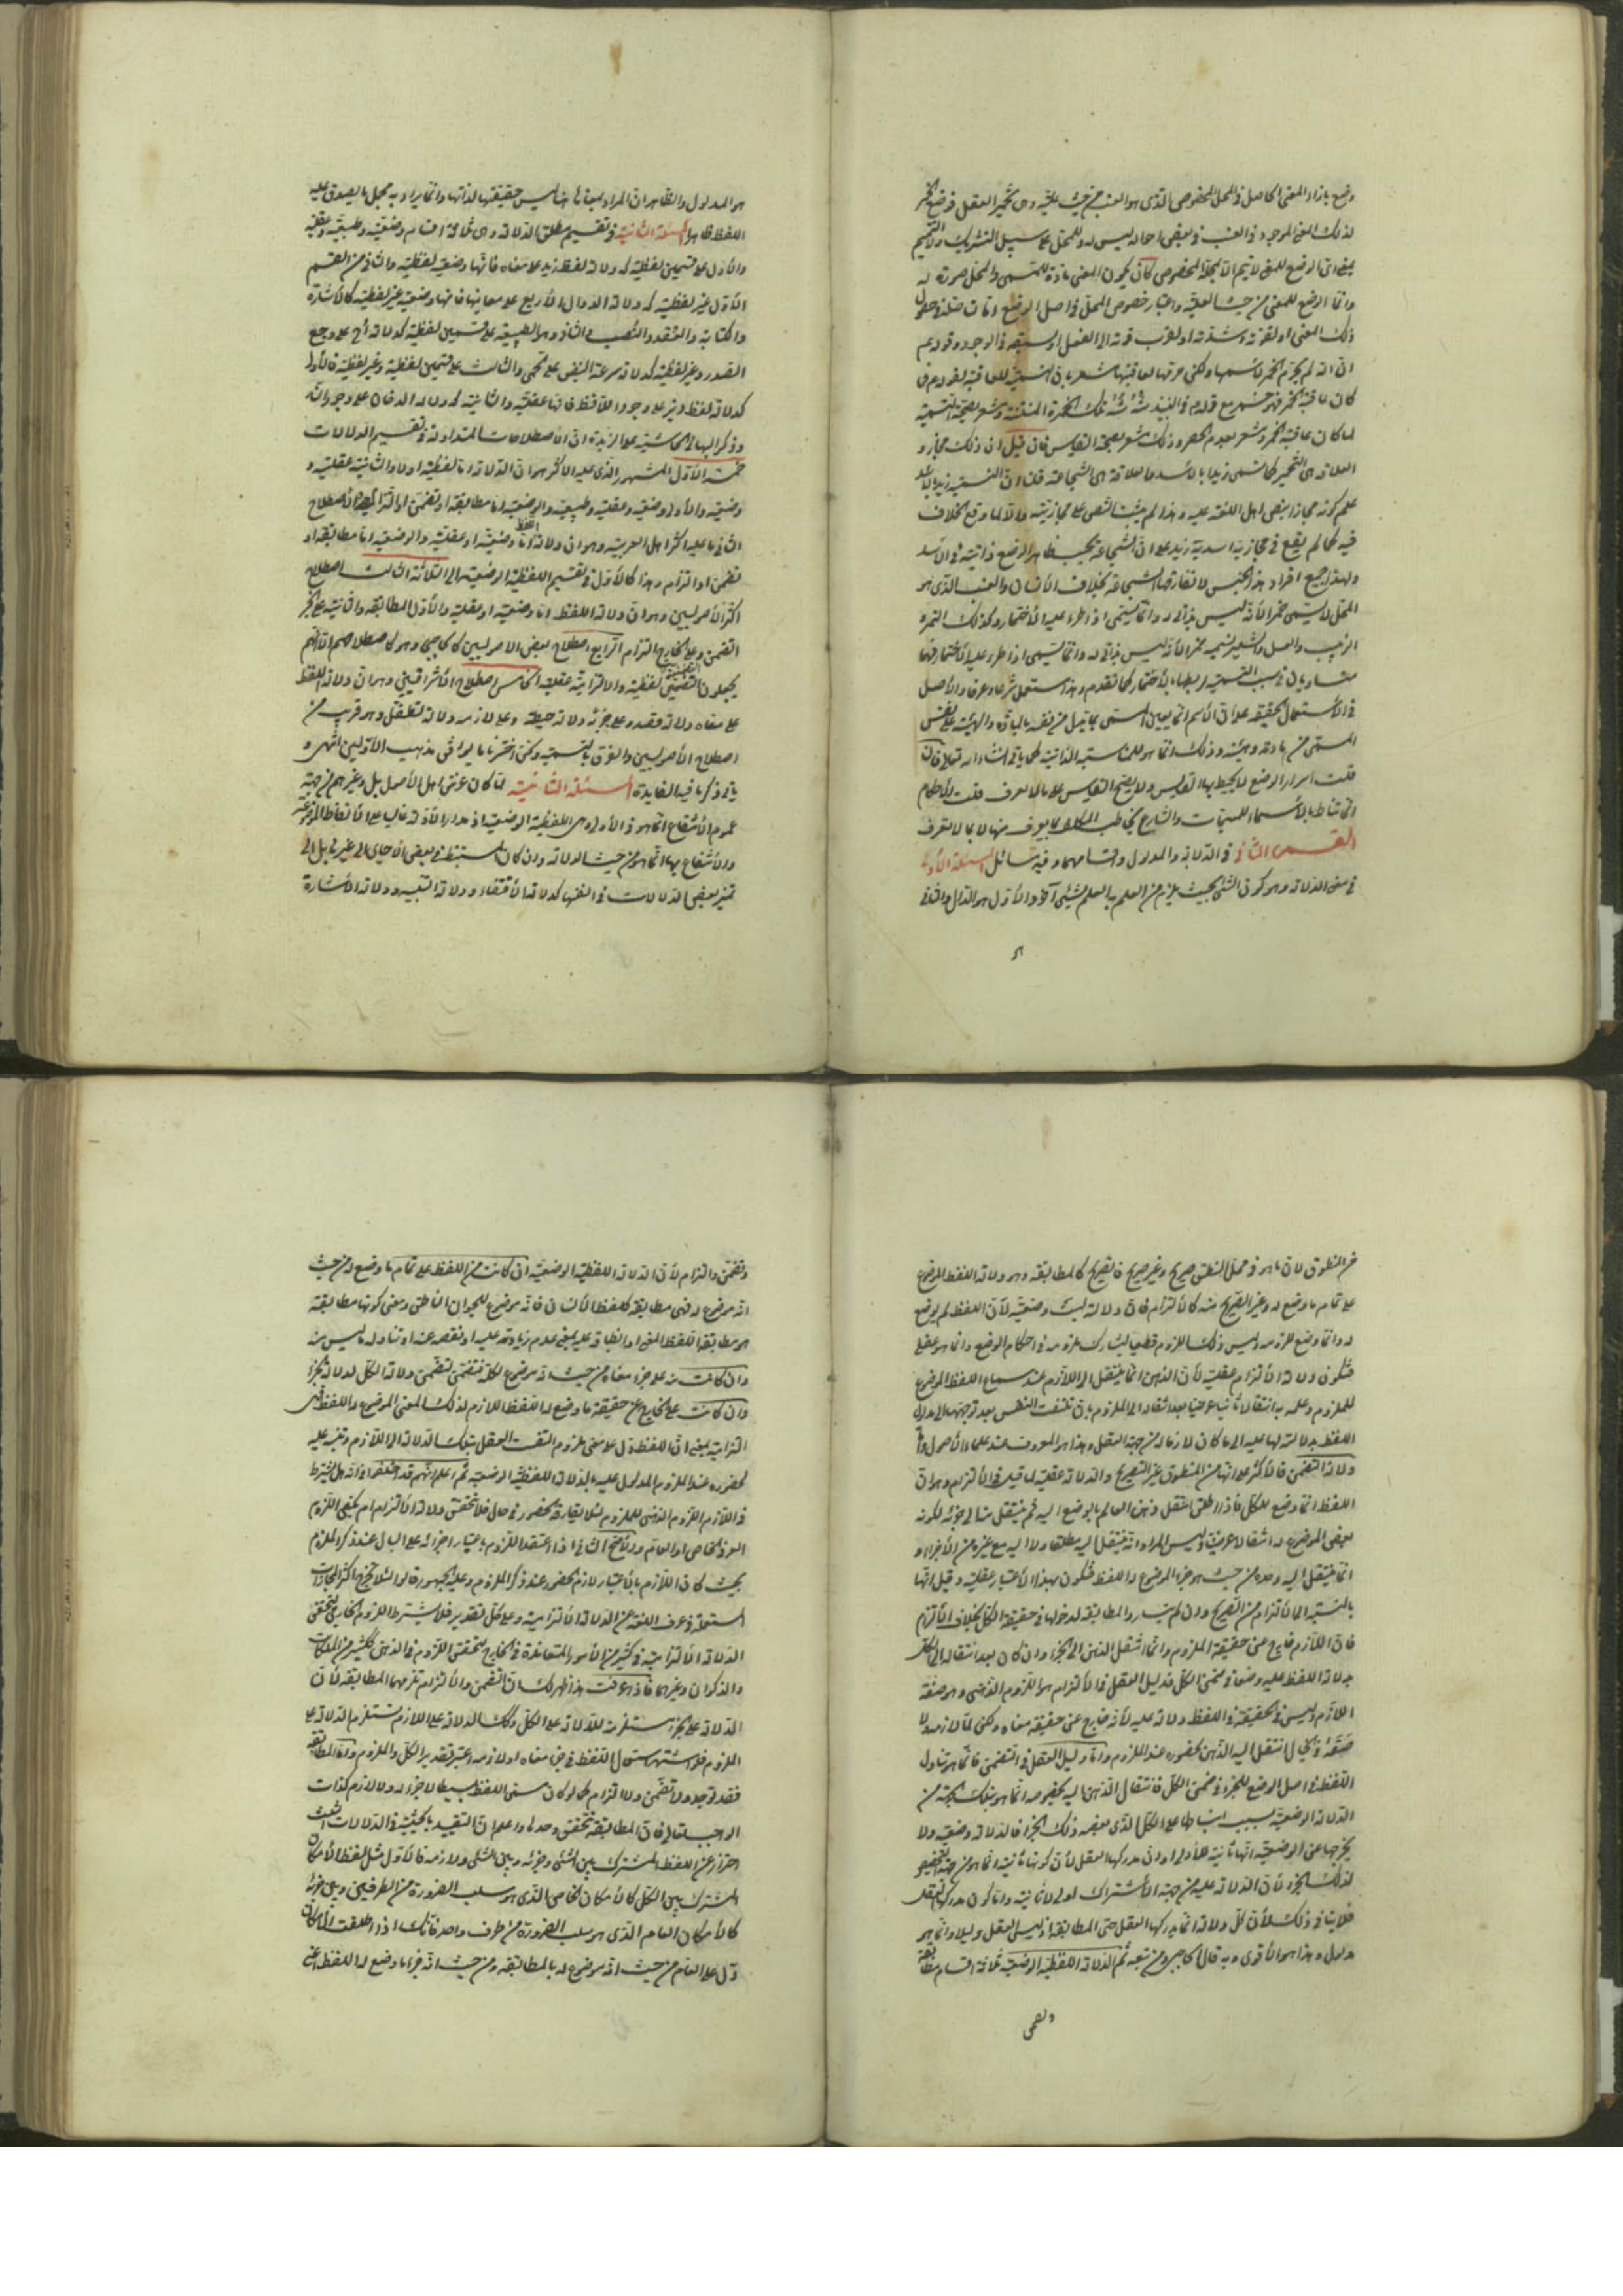 وضع بازاء المعنى الحاصل فى المحل المخصوص الذى هو العنب من حيث عليّته وهى تخمير العقل فوضع الخمر
لذلك المعنى الموجود فى العنب فى بعض احواله ليس له وللمحل على سبيل التشريك ولا التتميم
بمعنى ان الوضع للمعنى لا يتم الا بمحله المخصوص كان يكون المعنى مادة للمسمى والمحل صورة له
وانما الوضع للمعنى من حيث العليّة واعتبار خصوص المحل فى اصل الوضع
ذلك المعنى او لقوته وشدته او لقرب قوته الى الفعل او لسبقه فى الوجود وقولهم
ان الله لم يحرم الخمر لاسمها ولكن حرمها لعاقبتها مشعر بان التسمية للعاقبة لقولهم فما
كان عاقبة الخمر فهو خمر مع قولهم فى النبيذ شه شه تلك الخمرة المنتنة مشعر بصحة التسمية
لما كان عاقبة الخمر ومشعر بعدم الحصر وذلك مشعر بصحة القياس فان قيل ان ذلك مجاز و
العلاقة هى التخمير كما تسمى زيدا بالاسد والعلاقة هى الشجاعة قلت ان التسمية زيد بالاسد
علم كونه مجازا بنص اهل اللغة عليه وهذا لم يثبت النص على مجازيته والا لما وقع الخلاف
فيه كما لم يقع فى مجازية اسدية زيد على ان الشجاعة بحسب ظاهر الوضع ذاتية فى الاسد
ولهذا جميع افراد هذا الجنس لا تفارقها الشجاعة بخلاف الانسان والعنب الذى هو
المحل لا يسمى خمرا لانه ليس بذاتى له وانما يسمى اذا طرء عليه الاختمار وكذلك التمر و
الزبيب والعسل والشعير لم يسم خمرا لانه ليس بذاتى له وانما يسمى اذا طرء عليه الاختمار فهما
متساويان فى سبب التسمية لارتباطه بالاختمار كما تقدم وهذا مستعمل شرعا وعرفا والاصل
فى الاستعمال الحقيقة على ان الاسم انما يعين المسمى بما قيل من نفسه بالمادة والهيئة على نفس
المسمى من مادته وهيئته وذلك انما هو للمناسبة الذاتية كما ياتى انشاء الله تعالى فان
قلت اسرار الوضع لا يحيط بها القياس ولا يصح القياس على ما لا يعرف قلت الاحكام
انما تناط بالاسماء للمسميات والشارع يخاطب المكلف بما يعرف منها لا بما لا يعرف
القسم الثانى فى الدلالة والمدلول واقسامهما وفيه مسائل المسئلة الاولى
فى معنى الدلالة وهو كون الشئ بحيث يلزم من العلم به العلم بشئ آخر والاول هو الدال والثانى
هو المدلول والظاهر ان المراد بمعناها هنا ليس حقيقتها لذاتها وانما يراد به مجمل ما يصدق عليه
اللفظ ظاهرا المسئلة الثانية فى تقسيم مطلق الدلالة وهى ثلاثة اقسام وضعية وطبيعية وعقلية
والاول على قسمين لفظية كدلالة لفظ زيد على معناه فانها وضعية لفظية والثانى من القسم
الاول غير لفظية كدلالة الدوال الاربع على معانيها فانها وضعية غير لفظية كالاشارة
والكتابة والعقد والنصب والثانى وهو الطبيعية على قسمين لفظية كدلالة اح على وجع
الصدر وغير لفظية كدلالة سرعة النبض على الحمى والثالث على قسمين لفظية وغير لفظية فالاولى
كدلالة لفظ ديز على وجود اللافظ فانها عقلية والثانية كدلالة الدخان على وجود النار
وذكر البهائى فى حاشيته على الزبدة ان الاصطلاحات المتداولة فى تقسيم الدلالات
خمسة الاول المشهور الذى عليه الاكثر هو ان الدلالة اما لفظية او لا والثانية عقلية و
وضعية والاولى وضعية وعقلية وطبيعية والوضعية اما مطابقة او تضمن او التزام الاصطلاح
الثانى ما عليه اكثر اهل العربية وهو ان دلالة اللفظ اما وضعية او عقلية والوضعية اما مطابقة او
تضمن او التزام وهذا كالاول فى تقسيم اللفظية الوضعية الى الثلاثة الثالث اصطلاح
اكثر الاصوليين وهو ان دلالة اللفظ اما وضعية او عقلية والاولى المطابقة والثانية على الجزء
التضمن وعلى الخارج التزام الرابع اصطلاح بعض الاصوليين كالحاجبى وهو كاصطلاحهم الا انهم
يجعلون التضمنية لفظية والالتزامية عقلية الخامس اصطلاح الاشراقيين وهو ان دلالة اللفظ
على معناه دلالة قصد وعلى جزئه دلالة حيطة وعلى لازمه دلالة تطفل وهو قريب من
اصطلاح الاصوليين والفرق بالتسمية ونحن اخترنا ما يوافق مذهب الاولين اشهره و
ياتى ذكر ما فيه الفايدة المسئلة الثانية لما كان غرض اهل الاصول بل وغيرهم من جهة
عموم الانتفاع انما هو فى الاولى وهى اللفظية الوضعية اذ مدار الادلة غالبا على الالفاظ الموضوعة
والانتفاع بها انما هو من حيث الدلالة وان كان المستنبط فى بعض الاحيان الى غيره بل الى
تميز بعض الدلالات فى انفسها كدلالة الاقتضاء ودلالة التنبيه ودلالة الاشارة
من المنطوق لان ما هو فى محل النطق صريح وغير صريح فالصريح كالمطابقة وهو دلالة اللفظ الموضوع
على تمام ما وضع له وغير الصريح منه كالالتزام فان دلالته ليست وضعية لان اللفظ لم يوضع
له وانما وضع لملزومه وليس ذلك اللزوم قطعيا ليشارك ملزومه فى احكام الوضع وانما هو عقلى
فتكون دلالة الالتزام عقلية لان الذهن انما ينتقل الى اللازم عند سماع اللفظ الموضوع
للملزوم وعلمه به انتقالا ثانيا عرضيا بعد انتقاله الى الملزوم بان تلتفت النفس بعد توجهها الى مدلول
اللفظ بدلالته لها عليه الى ما كان لازما له من جهة العقل وهذا هو المعروف عند علماء الاصول واما
دلالة التضمن فالاكثر على انها من المنطوق غير الصريح والدلالة عقلية لما قيل فى الالتزام وهو ان
اللفظ انما وضع للكل فاذا اطلق انتقل ذهن العالم بالوضع اليه ثم ينتقل منه الى جزئه لكونه
بعض الموضوع له انتقالا عرضيا وليس المراد انه ينتقل اليه مطلقا ولا اليه مع غيره من الاجزاء و
انما ينتقل اليه وحده من حيث هو جزء الموضوع له اللفظ فتكون بهذا الاعتبار عقلية وقيل انها
بالنسبة الى الالتزام من الصريح وان لم تساو المطابقة لدخولها فى حقيقة الكل بخلاف الالتزام
فان اللازم خارج عن حقيقة الملزوم وانما انتقل الذهن الى الجزء وان كان بعد انتقاله الى الكل
بدلالة اللفظ عليه وضعا فى ضمن الكل فدليل العقل فى الالتزام هو اللزوم الذهنى وهو صفة
اللازم وليس فى الحقيقة فى اللفظ دلالة عليه لانه خارج عن حقيقة معناه ولكن لما لازمه
صفة فى الخيال انتقل اليه الذهن لحضوره عند الملزوم واما دليل العقل فى التضمن فانما هو تناول
اللفظ فى اصل الوضع للجزء فى ضمن الكل فانتقال الذهن اليه بخصوصه انما هو بتلك الجهة من
الدلالة الوضعية بسبب انبساطها على الكل الذى بعضه ذلك الجزء فالدلالة وضعية ولا
يخرجها عن الوضعية انها ثانية للاولى او ان مدركها العقل لان كونها ثانية انما هو من جهة التخصيص
لذلك الجزء لان الدلالة عليه من جهة الاشتراك اولى لا ثانية واما كون مدركها العقل
فلا ينافى ذلك لان كل دلالة انما يدركها العقل حتى المطابقة اذ ليس العقل دليلا وانما هو
مدلول وهذا هو الاقوى وبه قال الحاجبى ومن تبعه ثم الدلالة اللفظية الوضعية ثلاثة اقسام مطابقة
وتضمن
وتضمن والتزام لان الدلالة اللفظية الوضعية ان كانت من اللفظ على تمام ما وضع له من حيث
انه موضوع له فهى مطابقة كلفظ الانسان فانه موضوع للحيوان الناطق ومعنى كونها مطابقة
هو مطابقة اللفظ المعنى او انطباقه عليه بمعنى عدم زيادته عليه او نقصه عنه او تناوله ما ليس منه
وان كانت منه على جزء معناه من حيث انه موضوع لكله فتضمن لتضمن دلالة الكل لدلالة الجزء
وان كانت على الخارج عن حقيقة ما وضع له اللفظ اللازم لذلك المعنى الموضوع له اللفظ فهى
التزامية بمعنى ان اللفظ دل على معنى ملزوم التفت العقل بتلك الدلالة الى اللازم وتنبه عليه
لحضوره عند الملزوم المدلول عليه بالدلالة اللفظية الوضعية ثم اعلم انهم قد اختلفوا فى انه هل يشترط
فى اللازم اللزوم الذهنى للملزوم لئلا يفارقه بحضور فى حال فلا تتحقق دلالة الالتزام ام يكفى اللزوم
العرفى الخاص او العام والاصح الثانى اذا اعتقد اللزوم باعتبار اجرائه على البال عند ذكر الملزوم
بحيث كان اللازم بالاعتبار لازم الحضور عند ذكر الملزوم وعليه الجمهور قالوا لئلا تخرج اكثر المجازات
المستعملة فى عرف اللغة عن الدلالة الالتزامية وعلى كل تقدير فلا يشترط اللزوم الخارجى لتحقق
الدلالة الالتزامية فى كثير من الامور المتعاندة فى الخارج وتحقق اللزوم فى الذهن ككثير من الملكات
والذكران وغيرهما فاذا عرفت هذا ظهر لك ان التضمن والالتزام تلزمهما المطابقة لان
الدلالة على الجزء مستلزمة للدلالة على الكل وكذلك الدلالة على اللازم تستلزم الدلالة على
الملزوم فلو اشتهر استعمال اللفظ فى جزء معناه او لازمه اعتبر تقدير الكل والملزوم واما المطابقة
فقد توجد ولا تضمن ولا التزام كما لو كان معنى اللفظ بسيطا لا جزء له ولا لازم كذات
الواجب تعالى فان المطابقة تتحقق وحدها واعلم ان التقييد بالحيثية فى الدلالات الثلث
احتراز عن اللفظ المشترك بين الشئ وجزئه وبين الشئ ولازمه فالاول مثل لفظ الامكان
المشترك بين الكل كالامكان الخاص الذى هو سلب الضرورة من الطرفين وبين جزئه
كالامكان العام الذى هو سلب الضرورة من طرف واحد فانك اذا اطلقت الامكان
دل على العام من حيث انه موضوع له بالمطابقة ومن حيث انه جزء ما وضع له اللفظ اعنى